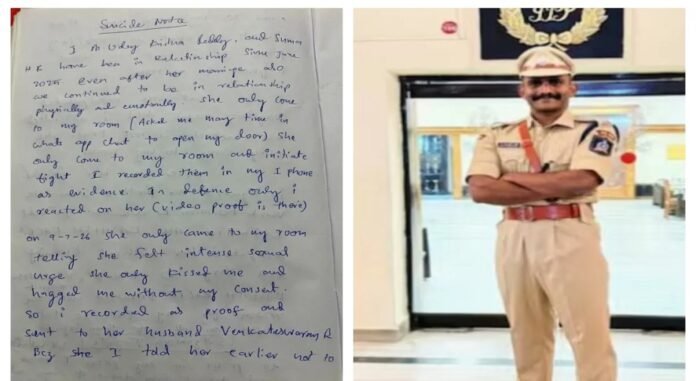 Suicide Note
I A Uday Krishna Reddy. and Suman
H K have been in relationship since June
2025 even after her marriage also
we continued to be in relationship
physically and emotionally. She only come
to my room (Asked me many time in
whats app chat to open my door) She
only come to my room and initiate
fight I recorded them in my I phone
as evidence In defence only i
reacted on her (video proof is there)
on 9-7-26 she only came to my room
telling she felt intense sexual
urge she only kissed me and
hugged me without my consent.
So i recorded as proof and
sent to her husband Venkateshwaran R
Bcz she I told her earlier not to